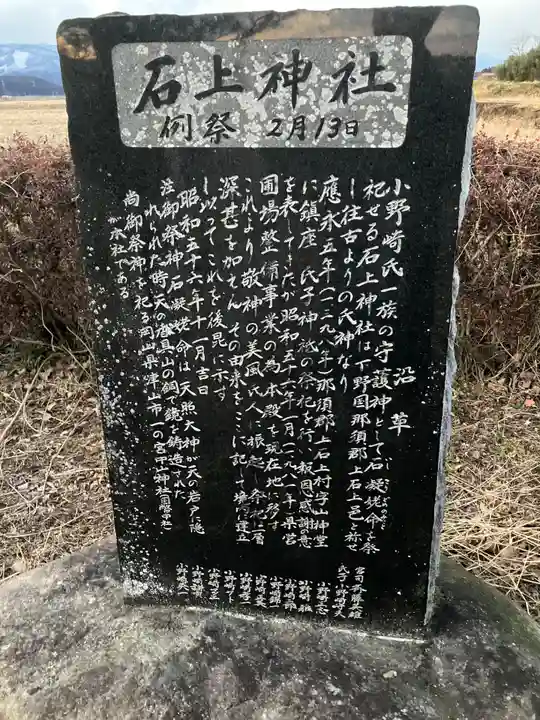 石上神社
例祭 2月13日
沿革
小野崎氏一族の守護神として石凝姥命を祭
祀せる石上神社は下野国那須郡上石上邑と称せ
し往古よりの氏神なり
應永五年(一三九八年)那須郡上石上村字山神堂
に鎮座、氏子神祇の祭祀を行い報恩感謝の意
を表してきたが昭和五十六年一月(一九八一年)県営
圃場整備事業の為本殿を現在地に移す
これより敬神の美風氏人に根起し祭祀に層一
深甚を加えん その由来をここに記して境内に建立
し以てこれを後昆に示す
昭和五十六年十一月吉日
註 御祭神石凝姥命は天照大神が天の岩戸に隠
れられた時天の香具山の銅で鏡を鋳造された
尚御祭神を祀る岡山県津山市一の宮中山神社
が本社である
宮司
氏子